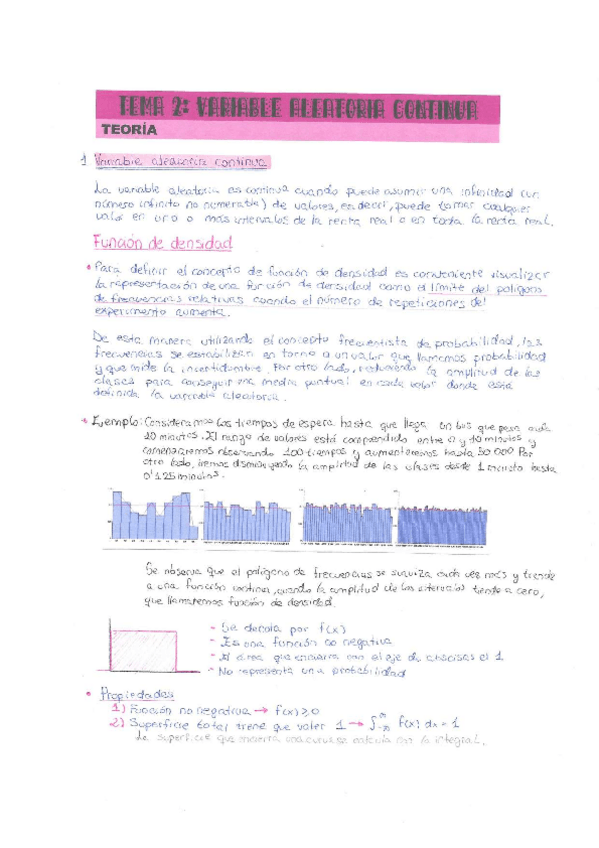 TEMA 2: VARIABLE ALEATORIA CONTINUA
TEORÍA
1 Variable aleatoria continua
La variable aleatoria es continua cuando puede asumir una infinidad (un
número infinito no numerable) de valores, es decir, puede tomar cualquier
valor en uno o más intervalos de la recta real o en toda la recta real.
Función de densidad
• Para definir el concepto de función de densidad es conveniente visualizar
la representación de una función de densidad como el límite del polígono
de frecuencias relativas cuando el número de repeticiones del
experimento aumenta.
De esta manera utilizando el concepto frecuentista de probabilidad, las
frecuencias se estabilizan en torno a un valor que llamamos probabilidad
y que mide la incertidumbre. Por otro lado, reduciendo la amplitud de las
clases para conseguir una medida puntual en cada valor donde está
definida la variable aleatoria.
• Ejemplo: Consideramos los tiempos de espera hasta que llega un bus que pasa cada
10 minutos. El rango de valores está comprendido entre 0 y 10 minutos y
comenzaremos observando 100 tiempos y aumentaremos hasta 50 000. Por
otro lado, iremos disminuyendo la amplitud de las clases desde 1 minuto hasta
0'125 minutos.
Se observa que el polígono de frecuencias se suaviza cada vez más y tiende
a una función continua, cuando la amplitud de los intervalos tiende a cero,
que llamaremos función de densidad.
- Se denota por f(x)
- Es una función no negativa
- El área que encierra con el eje de abscisas el 1
- No representa una probabilidad
• Propiedades
1) Función no negativa → f(x) ≥ 0
2) Superficie total tiene que valer 1 → ∫_{-∞}^{∞} f(x) dx = 1
La superficie que encierra una curva se calcula con la integral.